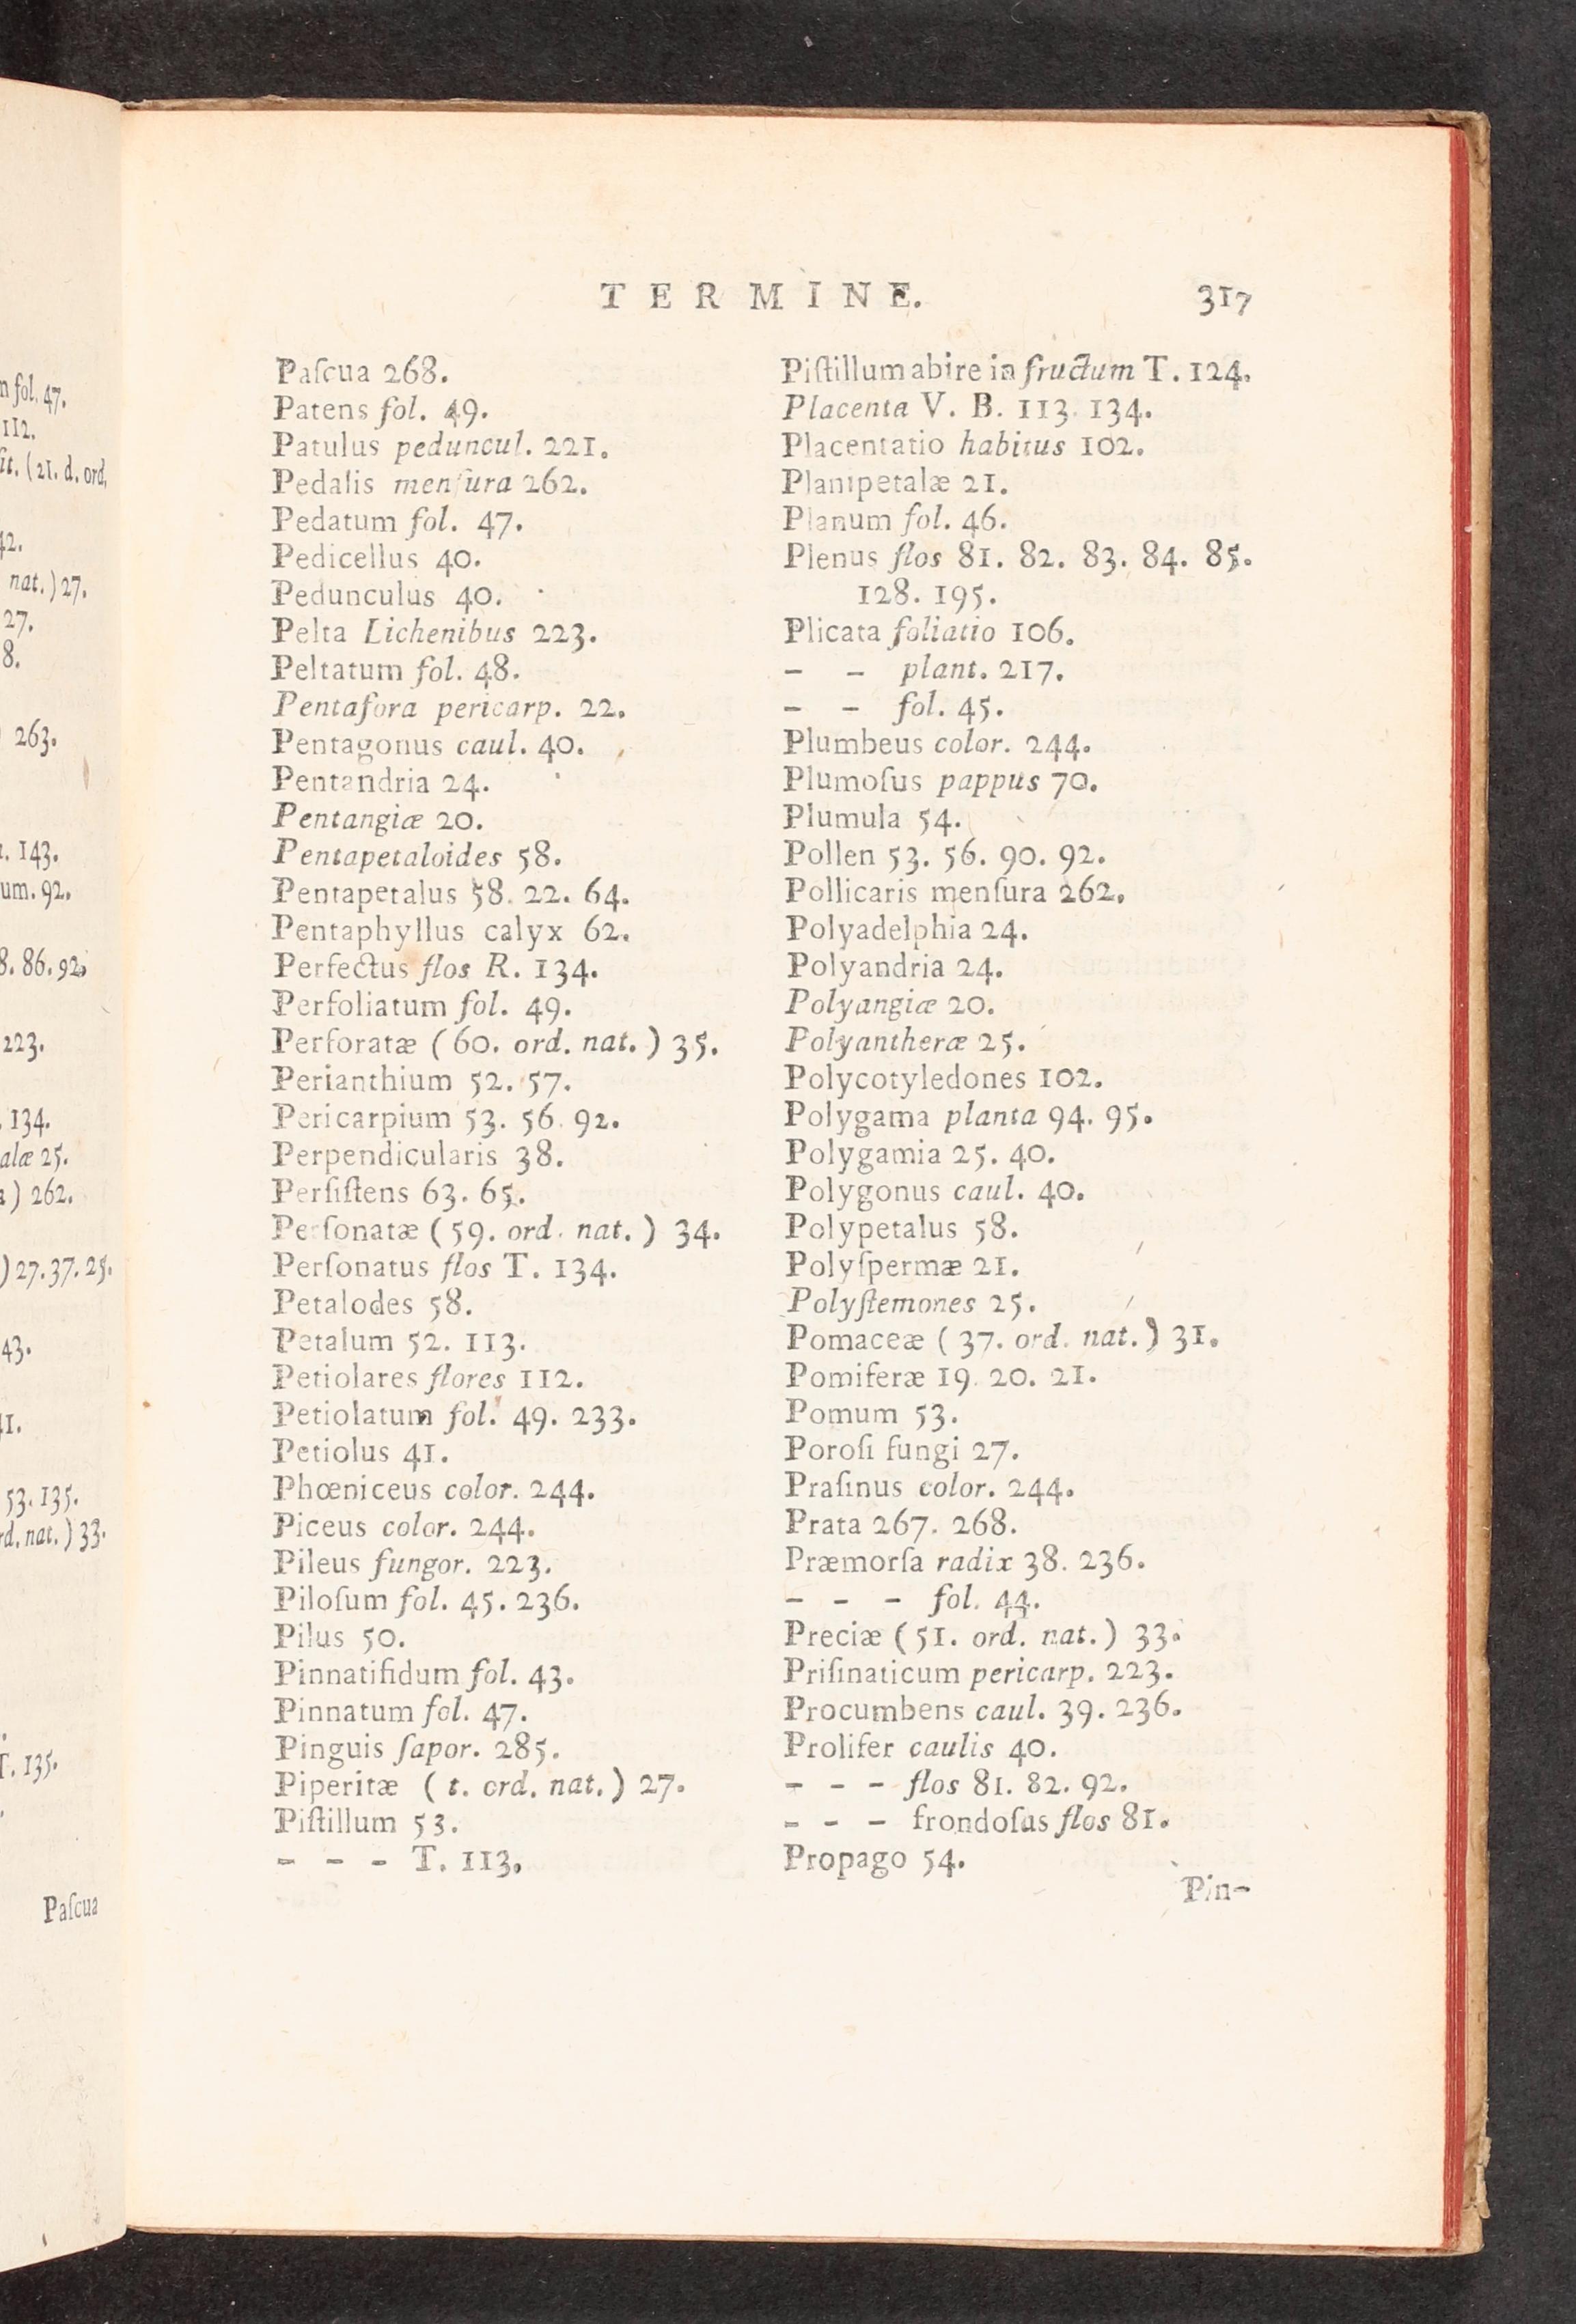 TERMINE. 317
Paſcua 268.
Patens fol. 49.
Patulus peduncul. 221.
Pedalis menſura 262.
Pedatum fol. 47.
Pedicellus 40.
Pedunculus 40.
Pelta Lichenibus 223.
Peltatum fol. 48.
Pentafora pericarp. 22.
Pentagonus caul. 40.
Pentandria 24.
Pentangiæ 20.
Pentapetaloides 58.
Pentapetalus 58. 22. 64.
Pentaphyllus calyx 62.
Perfectus flos R. 134.
Perfoliatum fol. 49.
Perforatæ (60. ord. nat.) 35.
Perianthium 52. 57.
Pericarpium 53. 56. 92.
Perpendicularis 38.
Perſiſtens 63. 65.
Perſonatæ (59. ord. nat.) 34.
Perſonatus flos T. 134.
Petalodes 58.
Petalum 52. 113.
Petiolares flores 112.
Petiolatum fol. 49. 233.
Petiolus 41.
Phœniceus color. 244.
Piceus color. 244.
Pileus fungor. 223.
Piloſum fol. 45. 236.
Pilus 50.
Pinnatifidum fol. 43.
Pinnatum fol. 47.
Pinguis ſapor. 285.
Piperitæ (1. ord. nat.) 27.
Piſtillum 53.
- - - T. 113.
Piſtillum abire in fructum T. 124.
Placenta V. B. 113. 134.
Placentatio habitus 102.
Planipetalæ 21.
Planum fol. 46.
Plenus flos 81. 82. 83. 84. 85.
128. 195.
Plicata foliatio 106.
- - plant. 217.
- - fol. 45.
Plumbeus color. 244.
Plumoſus pappus 70.
Plumula 54.
Pollen 53. 56. 90. 92.
Pollicaris menſura 262.
Polyadelphia 24.
Polyandria 24.
Polyangiæ 20.
Polyantheræ 25.
Polycotyledones 102.
Polygama planta 94. 95.
Polygamia 25. 40.
Polygonus caul. 40.
Polypetalus 58.
Polyſpermæ 21.
Polyſtemones 25.
Pomaceæ (37. ord. nat.) 31.
Pomiferæ 19. 20. 21.
Pomum 53.
Poroſi fungi 27.
Praſinus color. 244.
Prata 267. 268.
Præmorſa radix 38. 236.
- - - fol. 44.
Preciæ (51. ord. nat.) 33.
Priſinaticum pericarp. 223.
Procumbens caul. 39. 236.
Prolifer caulis 40.
- - - flos 81. 82. 92.
- - - frondoſus flos 81.
Propago 54.
Pin-
fol. 47.
112.
(21. d. ord.
nat.) 27.
27.
8.
263.
143.
um. 92.
86. 92.
223.
134.
alæ 25.
) 262.
) 27. 37. 25.
43.
53. 135.
rd. nat.) 33.
T. 135.
Paſcua